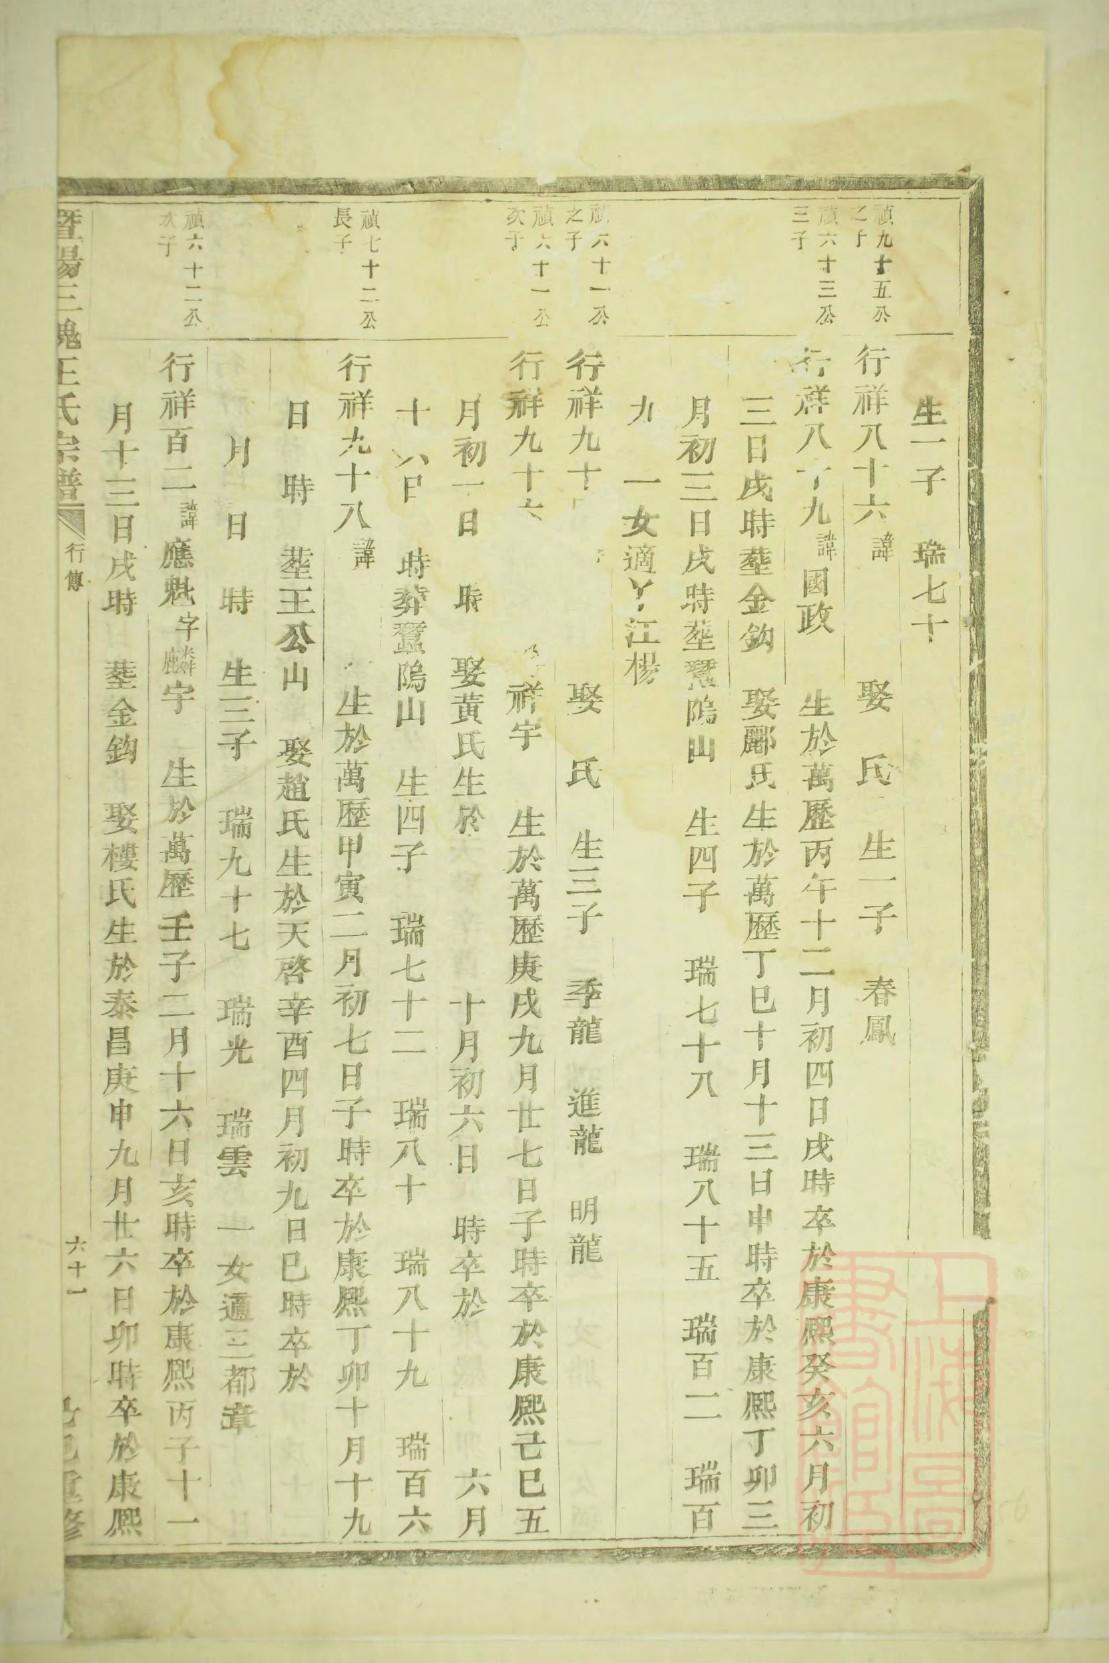 生一子 瑞七十
禎九十五公
之子
行祥八十六諱 娶 氏 生一子 春鳳
禎六十三公
三子
行祥八十九諱國政 生於萬歷丙午十二月初四日戌時卒於康熙癸亥六月初
三日戌時塟金鈎 娶酈氏生於萬歷丁巳十月十三日申時卒於康熙丁卯三
月初三日戌時塟鵞隖山 生四子 瑞七十八 瑞八十五 瑞百一 瑞百
九 一女適丫江楊
禎六十一公
之子
行祥九十 娶 氏 生三子 季龍 進龍 明龍
禎六十一公
次子
行祥九十六 祥宇 生於萬歷庚戌九月廿七日子時卒於康熙己巳五
月初一日 時 娶黃氏生於 十月初六日 時卒於 六月
十六日 時葬鵞隖山 生四子 瑞七十二 瑞八十 瑞八十九 瑞百六
禎七十二公
長子
行祥九十八諱 生於萬歷甲寅二月初七日子時卒於康熙丁卯十月十九
日 時 塟王公山 娶趙氏生於天啓辛酉四月初九日巳時卒於
月 日 時 生三子 瑞九十七 瑞光 瑞雲 一女適三都章
禎六十二公
次子
行祥百二諱應魁字麟宇 生於萬歷壬子二月十六日亥時卒於康熙丙子十一
月十三日戌時 塟金鈎 娶樓氏生於泰昌庚申九月廿六日卯時卒於康熙
暨陽三槐王氏宗譜 行傳 六十一 重修
上海圖書館藏